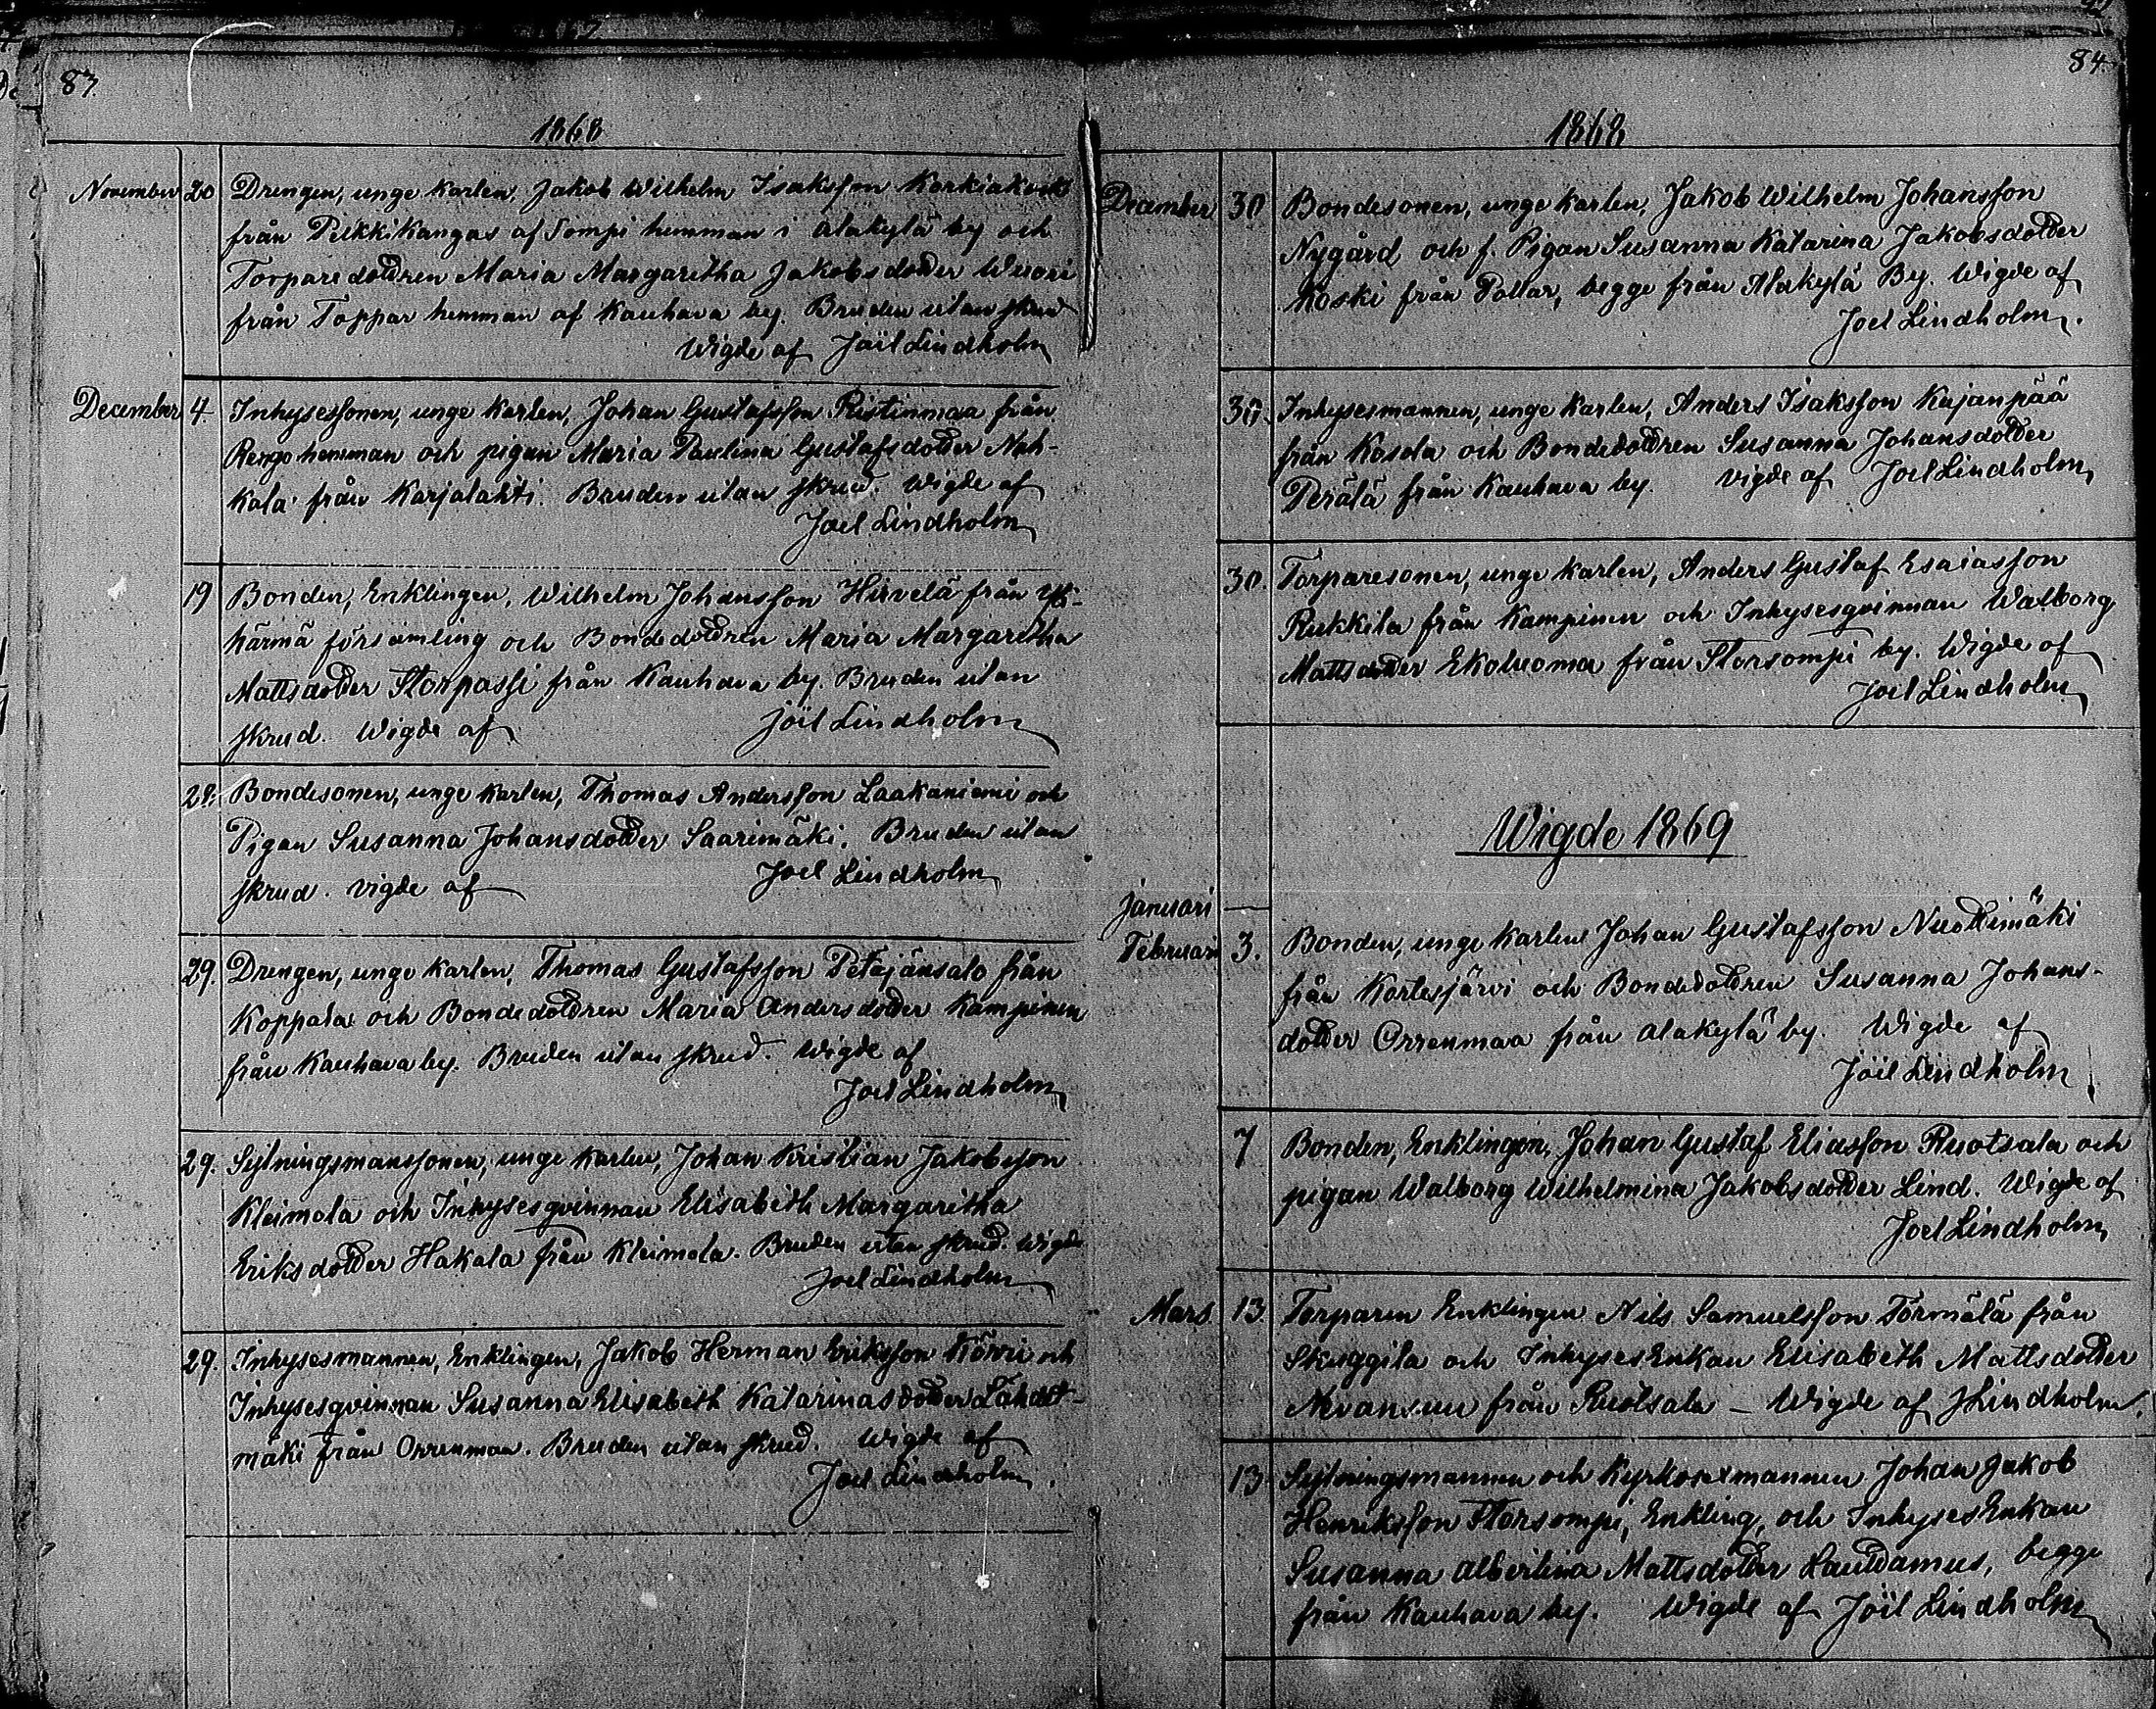 87.
1868
November 20 Drengen, unge karlen, Jakob Wilhelm Isaksson Korkiakoski
från Pukkikangas af Sompi hemman i Alakylä by och
Torparedottren Maria Margaritha Jakobsdotter Wuori
från Toppar hemman af Kauhava by. Bruden utan skrud
Wigde af Joël Lindholm
December 4. Inhysessonen, unge karlen, Johan Gustafsson Ristinmaa från
Rengo hemman och pigan Maria Paulina Gustafsdotter Nah-
kala från Karjalahti. Bruden utan skrud. Wigde af
Joel Lindholm
19 Bonden, Enklingen, Wilhelm Johansson Hirvelä från Yli-
härmä församling och Bondedottren Maria Margaretha
Mattsdotter Storpassi från Kauhava by. Bruden utan
skrud. Wigde af Joël Lindholm
29. Bondesonen, unge karlen, Thomas Andersson Laakaniemi och
Pigan Susanna Johansdotter Saarimäki. Bruden utan
skrud. vigde af Joel Lindholm
29. Drengen, unge karlen, Thomas Gustafsson Petäjänsalo från
Koppala och Bondedottren Maria Andersdotter Kampinen
från Kauhava by. Bruden utan skrud. Wigde af
Joel Lindholm
29. Sytningsmanssonen, unge karlen, Johan Kristian Jakobsson
Kleimola och Inhysesqvinnan Elisabeth Margaritha
Eriksdotter Hakala från Kleimola. Bruden utan skrud. Wigde
Joel Lindholm
29. Inhysesmannen, Enklingen, Jakob Herman Eriksson Körvi och
Inhysesqvinnan Susanna Elisabeth Katarinasdotter Lähdet-
mäki från Orrenmaa. Bruden utan skrud. Wigde af
Joel Lindholm.
84.
1868
December 30 Bondesonen, unge karlen, Jakob Wilhelm Johansson
Nygård och f. Pigan Susanna Katarina Jakobsdotter
Koski från Pollar, begge från Alakylä By. Wigde af
Joel Lindholm.
30. Inhysesmannen, unge karlen, Anders Isaksson Kajanpää
från Kosola och Bondedottren Susanna Johansdotter
Perälä från Kauhava by. vigde af Joel Lindholm
30. Torparesonen, unge karlen, Anders Gustaf Esaiasson
Rukkila från Kampinen och Inhysesqvinnan Walborg
Mattsdotter Ekoluoma från Storsompi by. Wigde af
Joel Lindholm
Wigde 1869
Januari —
Februari 3. Bonden, unge karlen Johan Gustafsson Nuottimäki
från Kortesjärvi och Bondedottren Susanna Johans-
dotter Orrenmaa från Alakylä by. Wigde af
Joël Lindholm
7 Bonden, Enklingen, Johan Gustaf Eliasson Ruotsala och
pigan Walborg Wilhelmina Jakobsdotter Lind. Wigde af
Joel Lindholm
Mars 13. Torparen Enklingen Nils Samuelsson Törmälä från
Skuggila och InhysesEnkan Elisabeth Mattsdotter
från Ruotsala – Wigde af JLindholm.
13. Sytningsmannen och Kyrkosexmannen Johan Jakob
Henriksson Storsompi, Enkling, och InhysesEnkan
Susanna Albertina Mattsdotter Lauttamus, begge
från Kauhava by. Wigde af Joël Lindholm